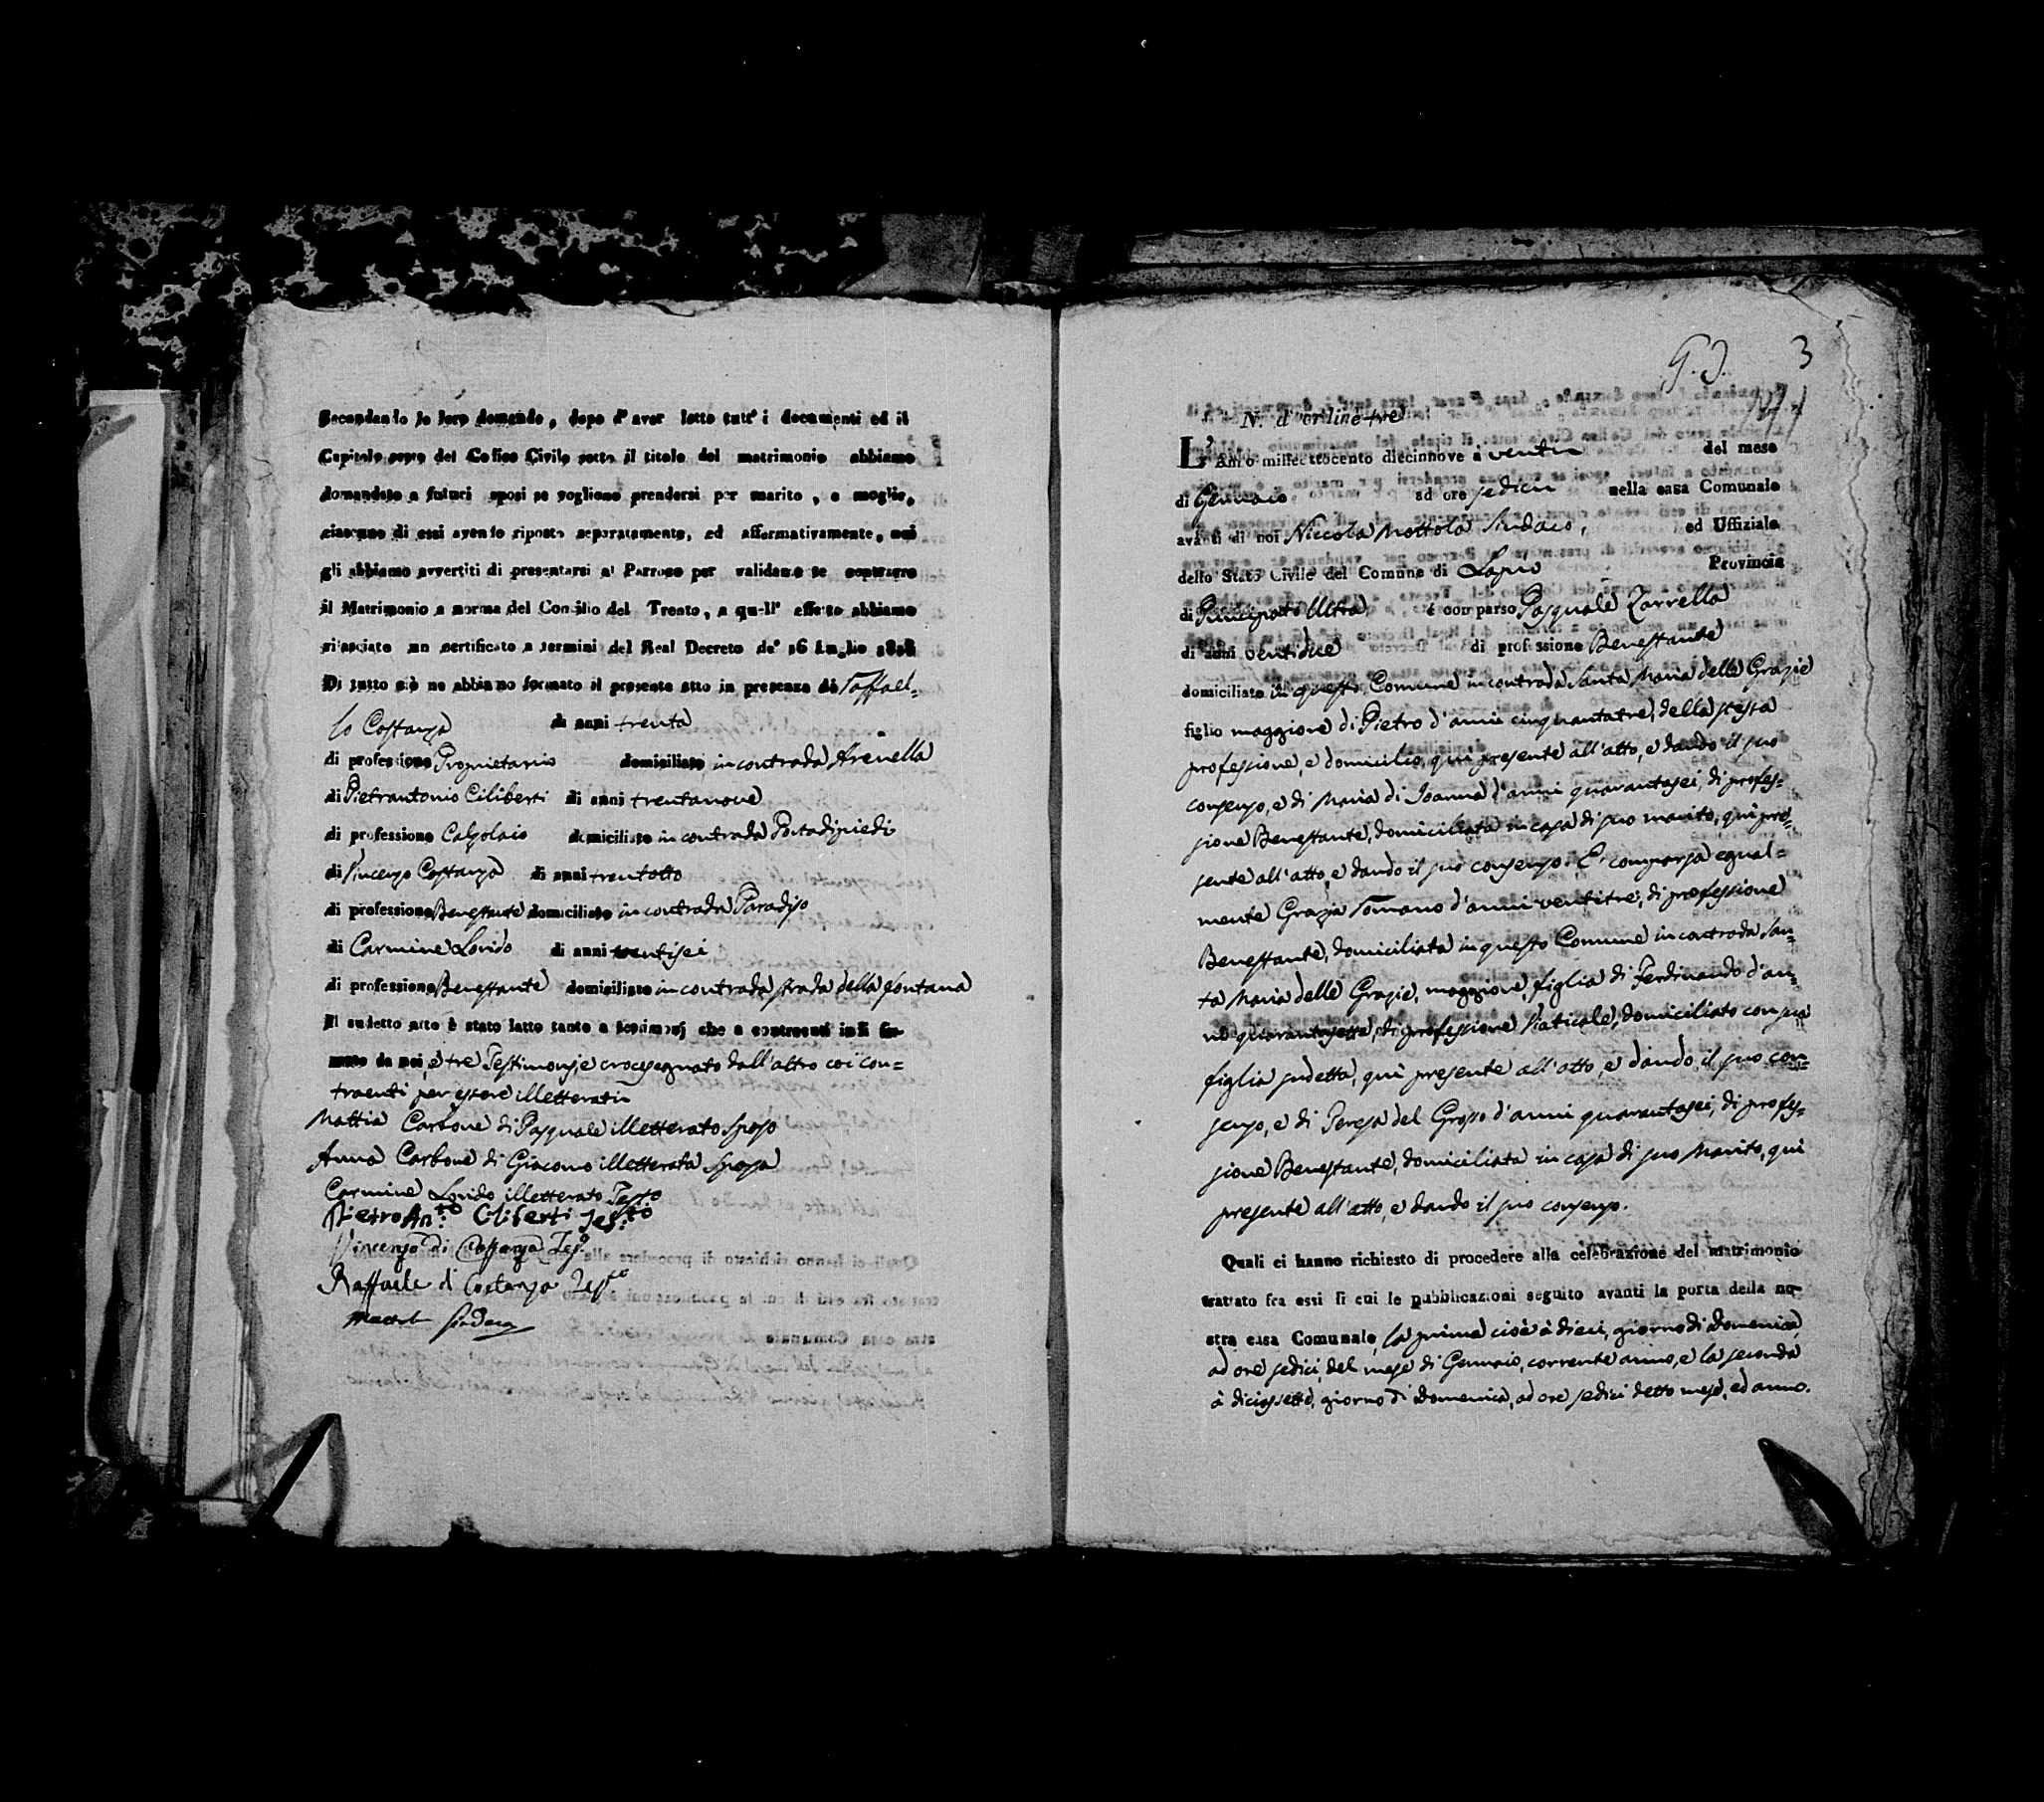 Secondando le loro domande, dopo d'aver letto tutt' i documenti ed il
Capitolo sesto del Codice Civile sotto il titolo del matrimonio abbiamo
domandato a futuri sposi se vogliono prendersi per marito, e moglie,
ciascuno di essi avendo riposto separatamente, ed affermativamente, noi
gli abbiamo avvertiti di presentarsi al Parroco per validamente contrarre
il Matrimonio a norma del Concilio del Trento, a quell' effetto abbiamo
rilasciato un certificato a termini del Real Decreto de' 16 Luglio
Di tutto ciò ne abbiamo formato il presente atto in presenza di Raffael=
lo Costanza di anni trenta
di professione Proprietario domiciliato in contrada Arenella
di Pietrantonio Ciliberti di anni trentanove
di professione Calzolaio domiciliato in contrada Portadipiedi
di Vincenzo Costanza di anni trentotto
di professione Benestante domiciliato in contrada Paradiso
di Carmine Lovido di anni
di professione Benestante domiciliato in contrada strada della fontana
Il sudetto atto è stato letto tanto a testimonj che a contraenti indi fir-
mato da noi, e tre Testimonj, e crocesegnato dall'altro coi con=
traenti per essere illetterati
Mattia Carbone di Pasquale illetterato Sposo
Anna Carbone di Giacomo illetterata Sposa
Carmine Lovido illetterato Testo
Pietro An:to Ciliberti Tes:to
Vincenzo di Costanza Teso
Raffaele di Costanza Testo
Sindaco
3
N.º d'ordine tre
L'Anno milleottocento diecinnove à venti del mese
di Gennaio ad ore sedici nella casa Comunale
avanti di noi Niccola Mottola Sindaco, ed Uffiziale
dello Stato Civile del Comune di Lapio Provincia
di Principato Ultra, è comparso Pasquale Zarrella
di anni ventidue di professione Benestante
domiciliato in questo Comune in contrada Santa Maria delle Grazie
figlio maggiore di Pietro d'anni cinquantatre, della stessa
professione, e domicilio, quì presente all'atto, e dando il suo
consenso, e di Maria di Joanna d'anni quarantasei, di profes=
sione Benestante, domiciliata in casa di suo marito, quì pre=
sente all'atto, e dando il suo consenso. E' comparsa egual=
mente Grazia Romano d'anni ventitre, di professione
Benestante, domiciliata in questo Comune in contrada San=
ta Maria delle Grazie, maggiore, figlia di Ferdinando d'an=
ni quarantasette, di professione Viaticale, domiciliato con sua
figlia sudetta, quì presente all'atto, e dando il suo con=
senso, e di Teresa del Grosso d'anni quarantasei, di profes=
sione Benestante, domiciliata in casa di suo Marito, quì
presente all'atto, e dando il suo consenso.
Quali ci hanno richiesto di procedere alla celebrazione del matrimonio
trattato fra essi li cui le pubblicazioni seguito avanti la porta della no-
stra casa Comunale, la prima cioè à dieci, giorno di Domenica,
ad ore sedici, del mese di Gennaio, corrente anno, e la seconda
à diciassette, giorno di Domenica, ad ore sedici detto mese, ed anno.